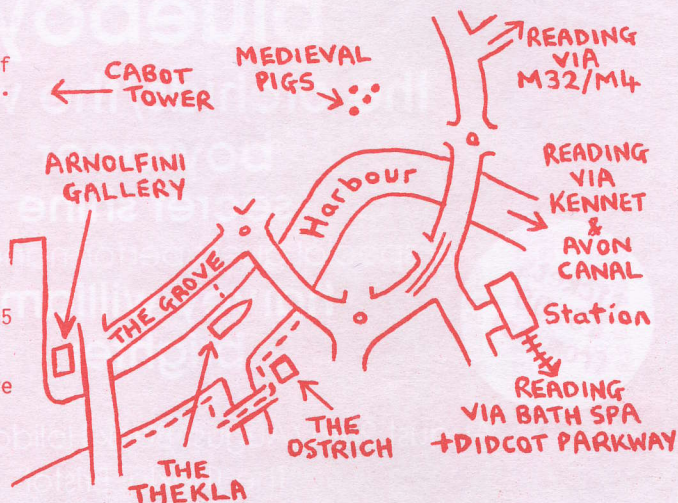 f
.
CABOT
TOWER
MEDIEVAL
PIGS
READING
VIA
M32/M4
ARNOLFINI
GALLERY
Harbour
READING
VIA
KENNET
&
AVON
CANAL
THE GROVE
5
Station
e
THE
OSTRICH
READING
VIA BATH SPA
+DIDCOT PARKWAY
THE
THEKLA